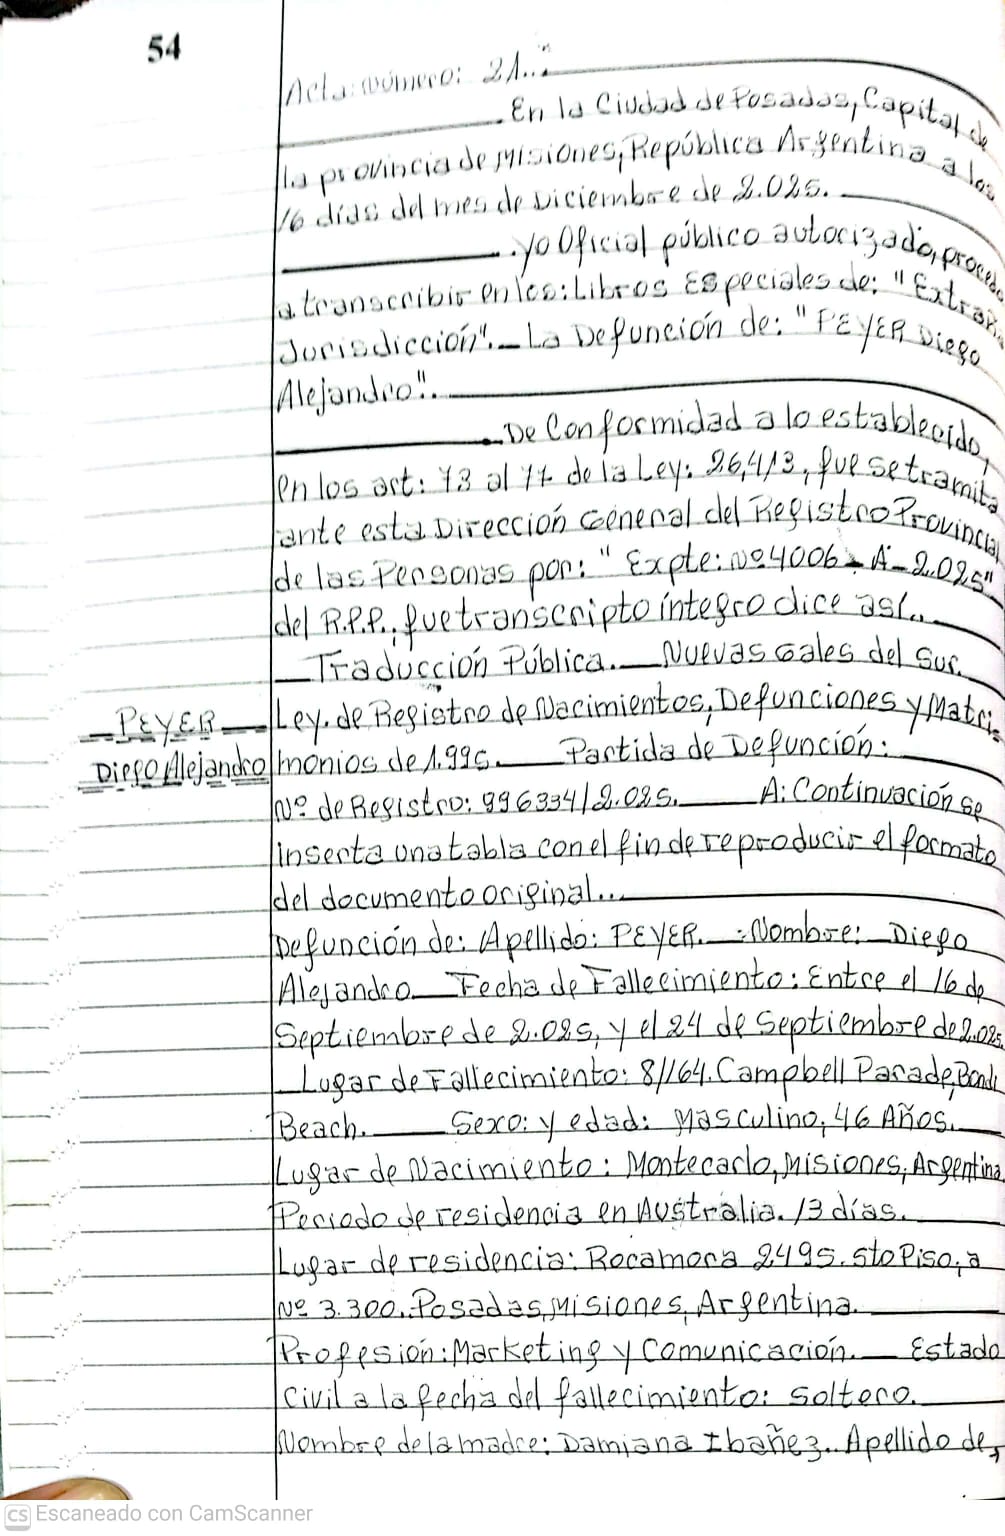 54
Acta: número: 21..."
En la Ciudad de Posadas, Capital de
la provincia de Misiones, República Argentina a los
16 días del mes de Diciembre de 2.025.
yo Oficial público autorizado, procedo
a transcribir en los: Libros Especiales de: "Extraña
Jurisdicción". La Defunción de: "PEYER Diego
Alejandro".
De Conformidad a lo establecido,
en los art: 73 al 77 de la Ley: 26,413, que se tramita
ante esta Dirección General del Registro Provincial
de las Personas por: "Expte: Nº 4006 - A - 2.025"
del R.P.P., que transcripto íntegro dice así..
Traducción Pública. Nuevas Gales del Sur.
PEYER
Diego Alejandro
Ley. de Registro de Nacimientos, Defunciones y Matri-
monios de 1.995. Partida de Defunción:
Nº de Registro: 996334/2.025. A: Continuación se
inserta una tabla con el fin de reproducir el formato
del documento original...
Defunción de: Apellido: PEYER. Nombre: Diego
Alejandro. Fecha de Fallecimiento: Entre el 16 de
Septiembre de 2.025, y el 24 de Septiembre de 2.025.
Lugar de Fallecimiento: 8/164. Campbell Parade, Bondi
Beach. Sexo: y edad: Masculino, 46 Años.
Lugar de Nacimiento: Montecarlo, Misiones, Argentina
Periodo de residencia en Australia. 13 días.
Lugar de residencia: Rocamora 2495. 5to Piso, a
Nº 3.300. Posadas, Misiones, Argentina.
Profesión: Marketing y Comunicación. Estado
Civil a la fecha del fallecimiento: Soltero.
Nombre de la madre: Damiana Ibañez. Apellido de,
CS Escaneado con CamScanner